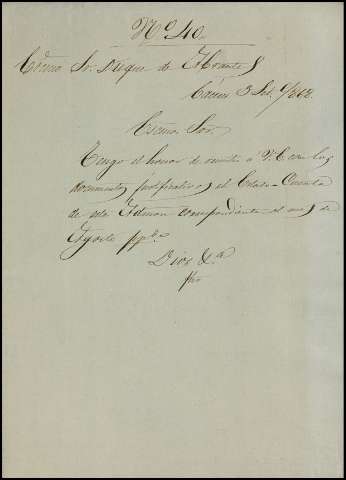 Nº 40.
Excmo Sr. Duque de Abrantes
Cáceres 3 Set. 1862.
Escmo. Sor.
Tengo el honor de remitir a V.E. con los
documentos justificativos el Estado-Cuenta
de esta Admon correspondiente al mes de
Agosto pp.do
Dios &.a